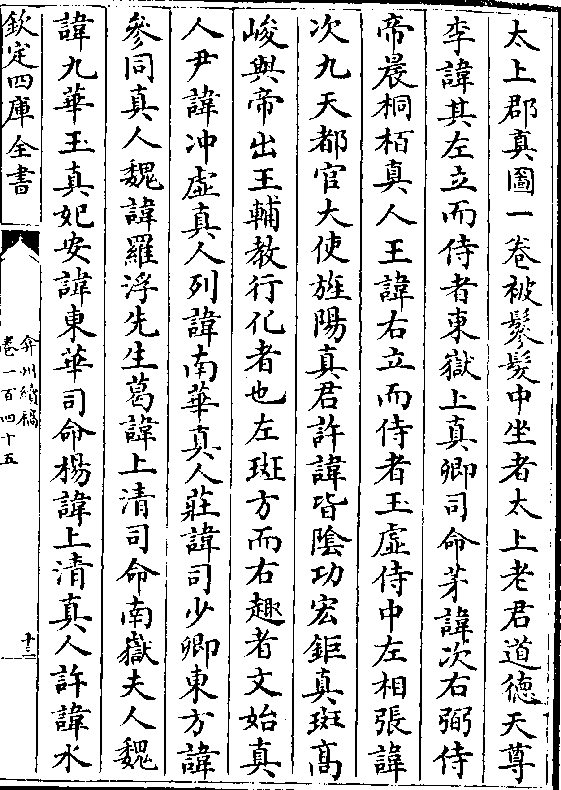 太上郡真圖一卷被鬖髮中坐者太上老君道德天尊
李諱其左立而侍者東嶽上真卿司命茅諱次右弼侍
帝晨桐栢真人王諱右立而侍者玉虛侍中左相張諱
次九天都官大使旌陽真君許諱皆隂功宏鉅真斑髙
峻與帝出王輔教行化者也左斑方而右趨者文始真
人尹諱冲虛真人列諱南華真人莊諱司少卿東方諱
參同真人魏諱羅浮先生葛諱上清司命南嶽夫人魏
諱九華玉真妃安諱東華司命楊諱上清真人許諱水
欽定四庫全書
弇州續稿
卷一百四十五
十三